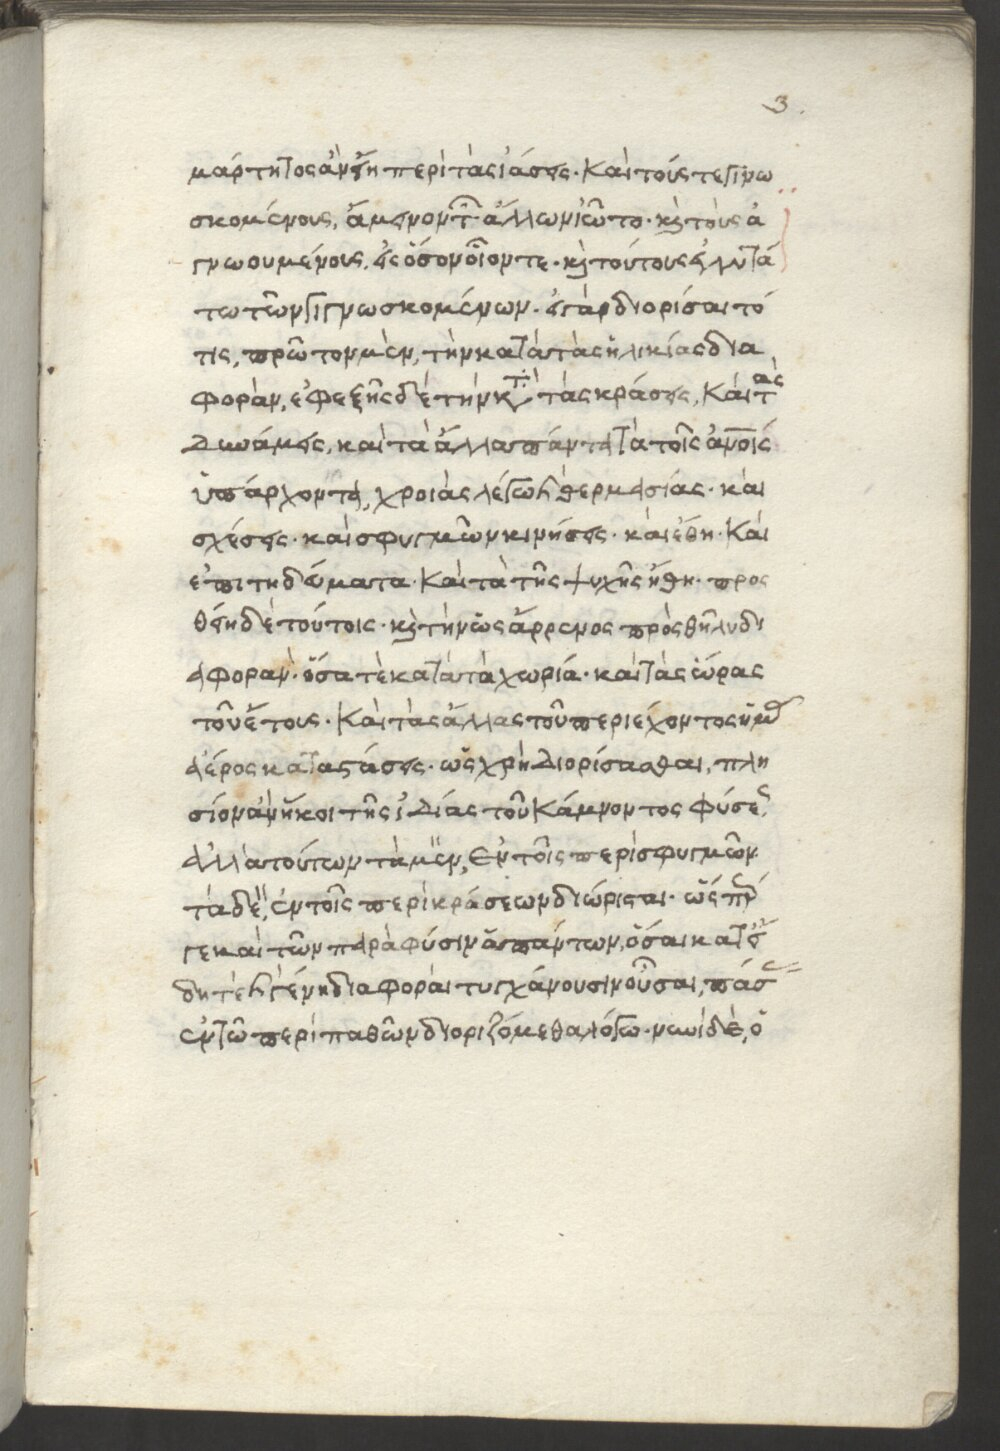 3.
μάρτητος ἂν εἴη περὶ τὰς ἰάσεις. Καὶ τούς τε γινω
σκομένους, ἄμεινον τῶν ἄλλων ἰῷτο. καὶ τοὺς ἀ
γνωουμένους, εἰς ὅσον οἷόν τε. καὶ τούτους ἐγγυτά
τω τῶν γιγνωσκομένων. εἰ γὰρ διορίσαιτό
τις, πρῶτον μὲν, τὴν κατὰ τὰς ἡλικίας δια
φορὰν, ἐφεξῆς δὲ τὴν κατὰ τὰς κράσεις, Καὶ τὰς
Δυνάμεις, καὶ τὰ ἄλλα πάντα τὰ τοῖς ἀνοις
ὑπάρχοντα, χροιὰς λέγω καὶ θερμασίας. καὶ
σχέσεις. καὶ σφυγμῶν κινήσεις. καὶ ἔθη. Καὶ
ἐπιτηδεύματα. Καὶ τὰ τῆς ψυχῆς ἤθη. προς
θείη δὲ τούτοις. καὶ τὴν ὡς ἄρρενος πρὸς θῆλυ δι
αφοράν. ὅσα τὲ κατὰ τὰ χωρία. καὶ τὰς ὥρας
τοῦ ἔτους. Καὶ τὰς ἄλλας τοῦ περιέχοντος ἡμᾶς
ἀέρος καταστάσεις. ὡς χρὴ Διορίσασθαι, πλη
σίον ἂν ἥκοι τῆς ἰδίας τοῦ Κάμνοντος φύσεως,
ἀλλὰ τούτων τὰ μὲν, Ἐν τοῖς περὶ σφυγμῶν
τὰ δὲ, ἐν τοῖς περὶ κράσεων διώρισται. ὥσπερ
γε καὶ τῶν παρὰ φύσιν ἁπάντων, ὅσαι κατ' εἴ
δη τὲ καὶ γένη διαφοραὶ τυγχάνουσιν οὖσαι, πάσας
ἐν τῷ περὶ παθῶν διοριζόμεθα λόγῳ. νυνὶ δὲ, ὁ